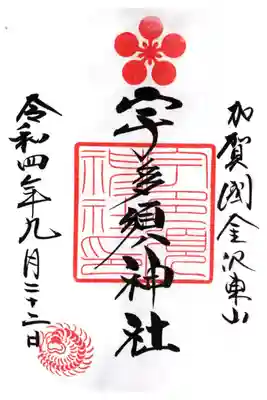 加賀國金沢東山
宇多須神社
令和四年九月二十二日